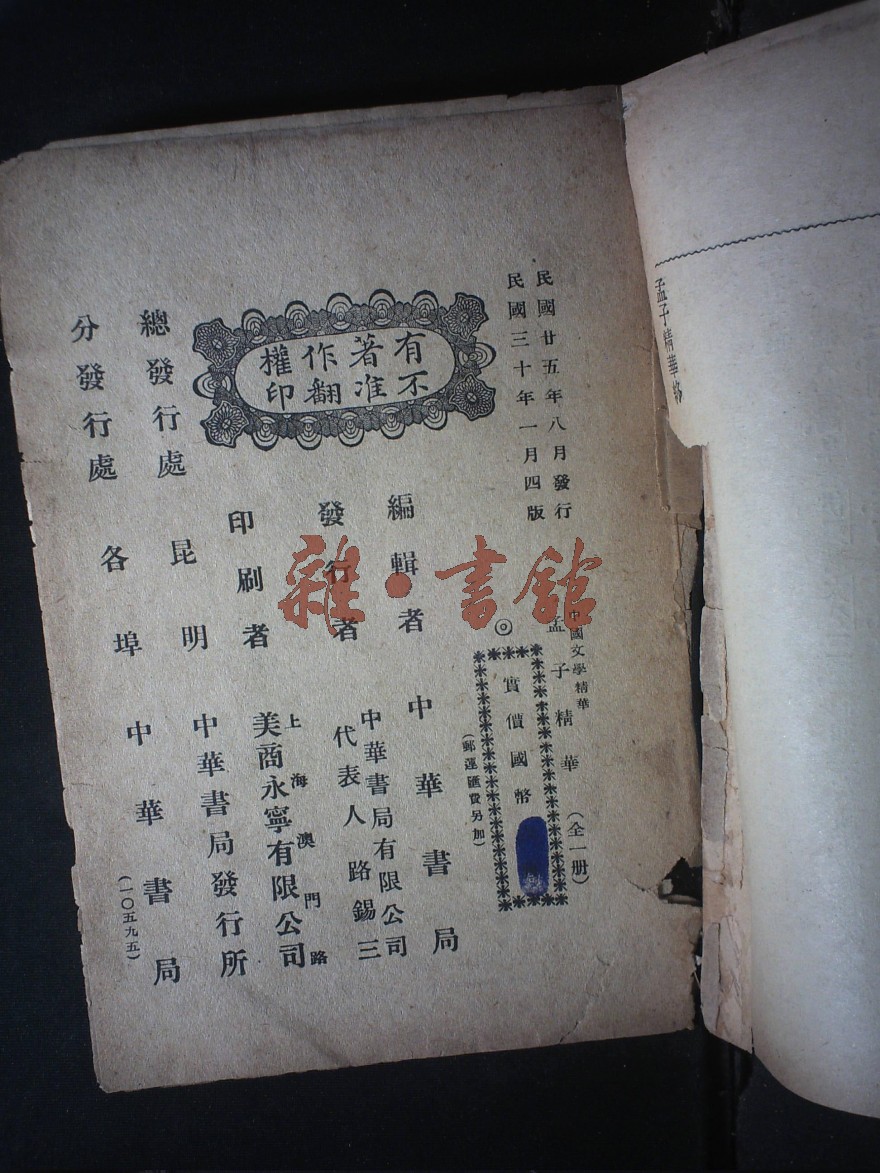 民國廿五年八月發行
民國三十年一月四版
中國文學精華
孟子精華 (全一册)
◎
實價國幣
(郵運匯費另加)
有著作權
不准翻印
編輯者 中華書局
發行者 中華書局有限公司
代表人 路錫三
印刷者 上海澳門路
美商永寧有限公司
總發行處 昆明 中華書局發行所
分發行處 各埠 中華書局
(一〇五九五)
孟子精華
雜·書館